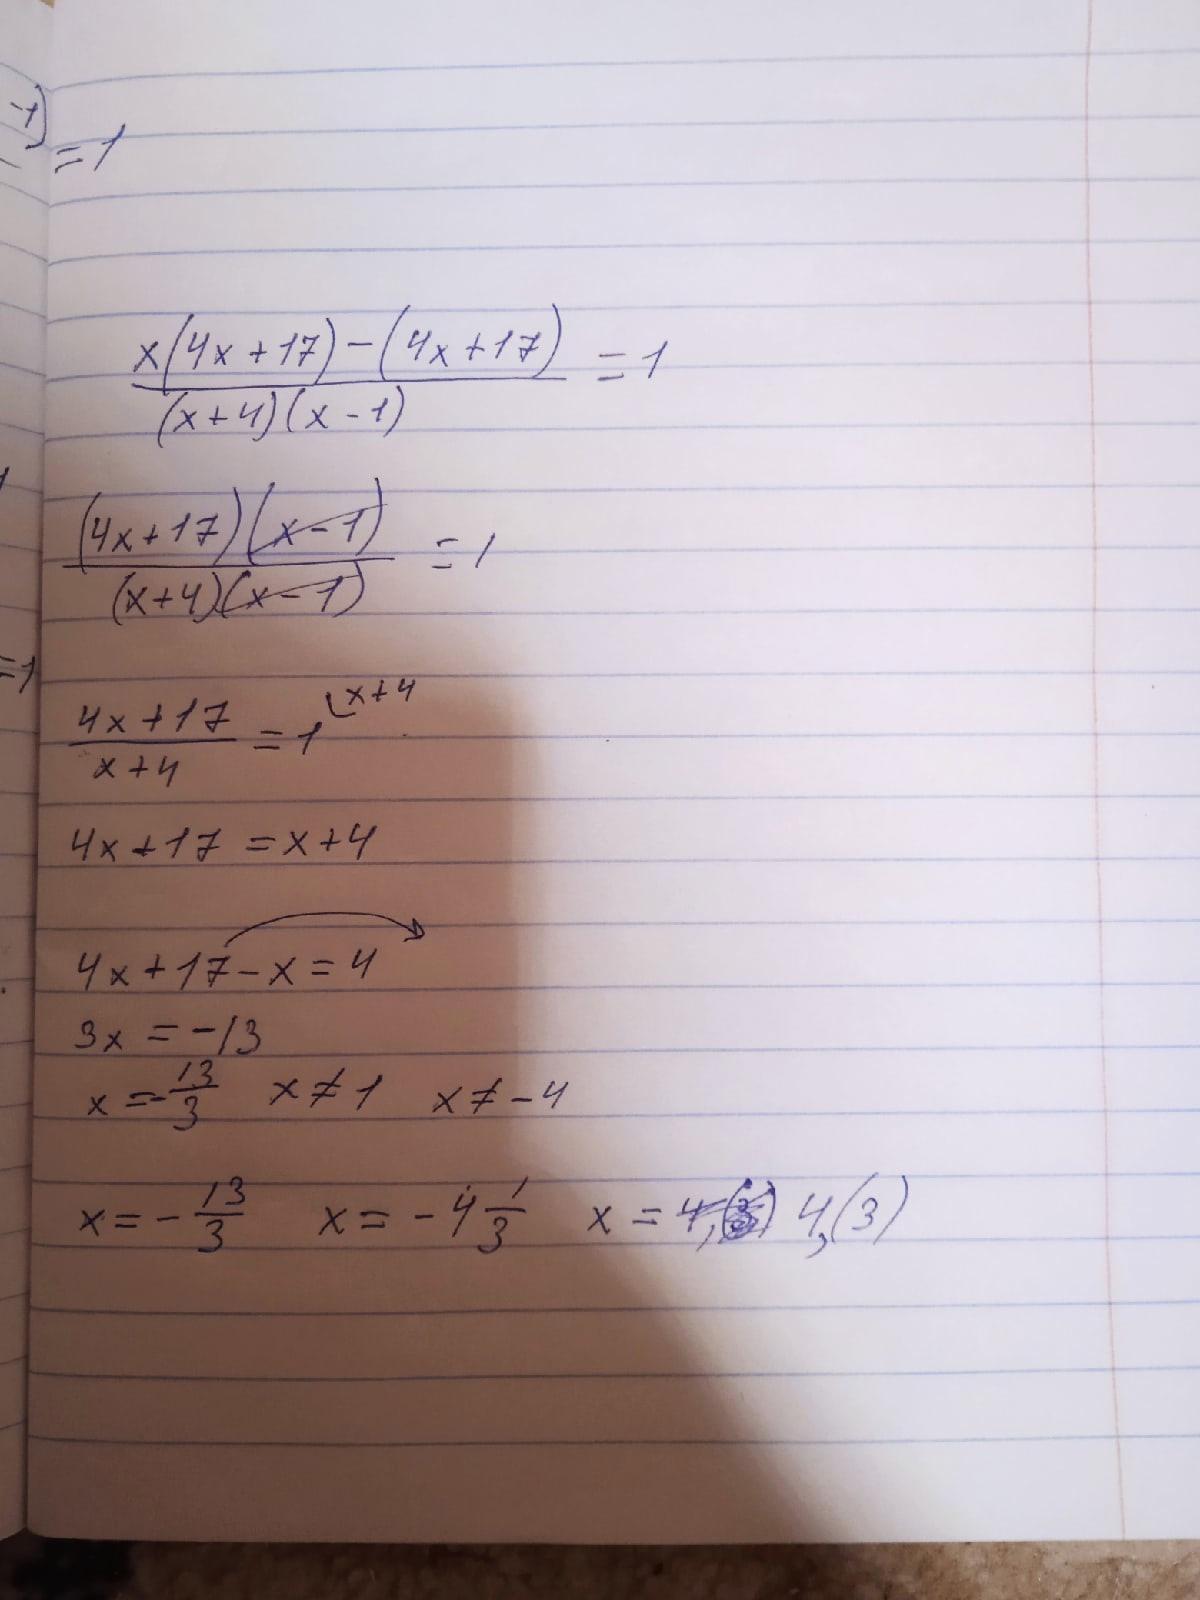 -1)
= 1
x(4x+17)-(4x+17) / (x+4)(x-1) = 1
(4x+17)(x-1) / (x+4)(x-1) = 1
=1
4x+17 / x+4 = 1 ⌞x+4
4x+17 = x+4
4x+17-x=4
3x = -13
x = -13/3 x≠1 x≠-4
x = -13/3 x = -4 1/3 x = 4,(3)